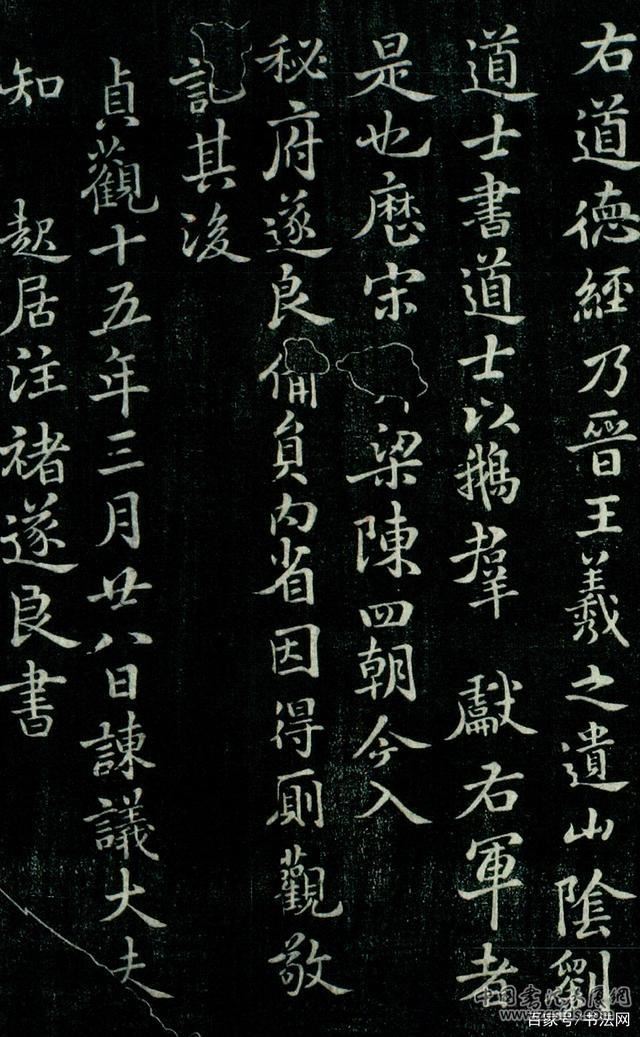 右道德經乃晉王羲之遺山陰劉
道士書道士以鵝羣 獻右軍者
是也歷宋 梁陳四朝今入
秘府遂良備員內省因得厠觀敬
記其後
貞觀十五年三月廿八日諫議大夫
知 起居注褚遂良書
百家号/书法网